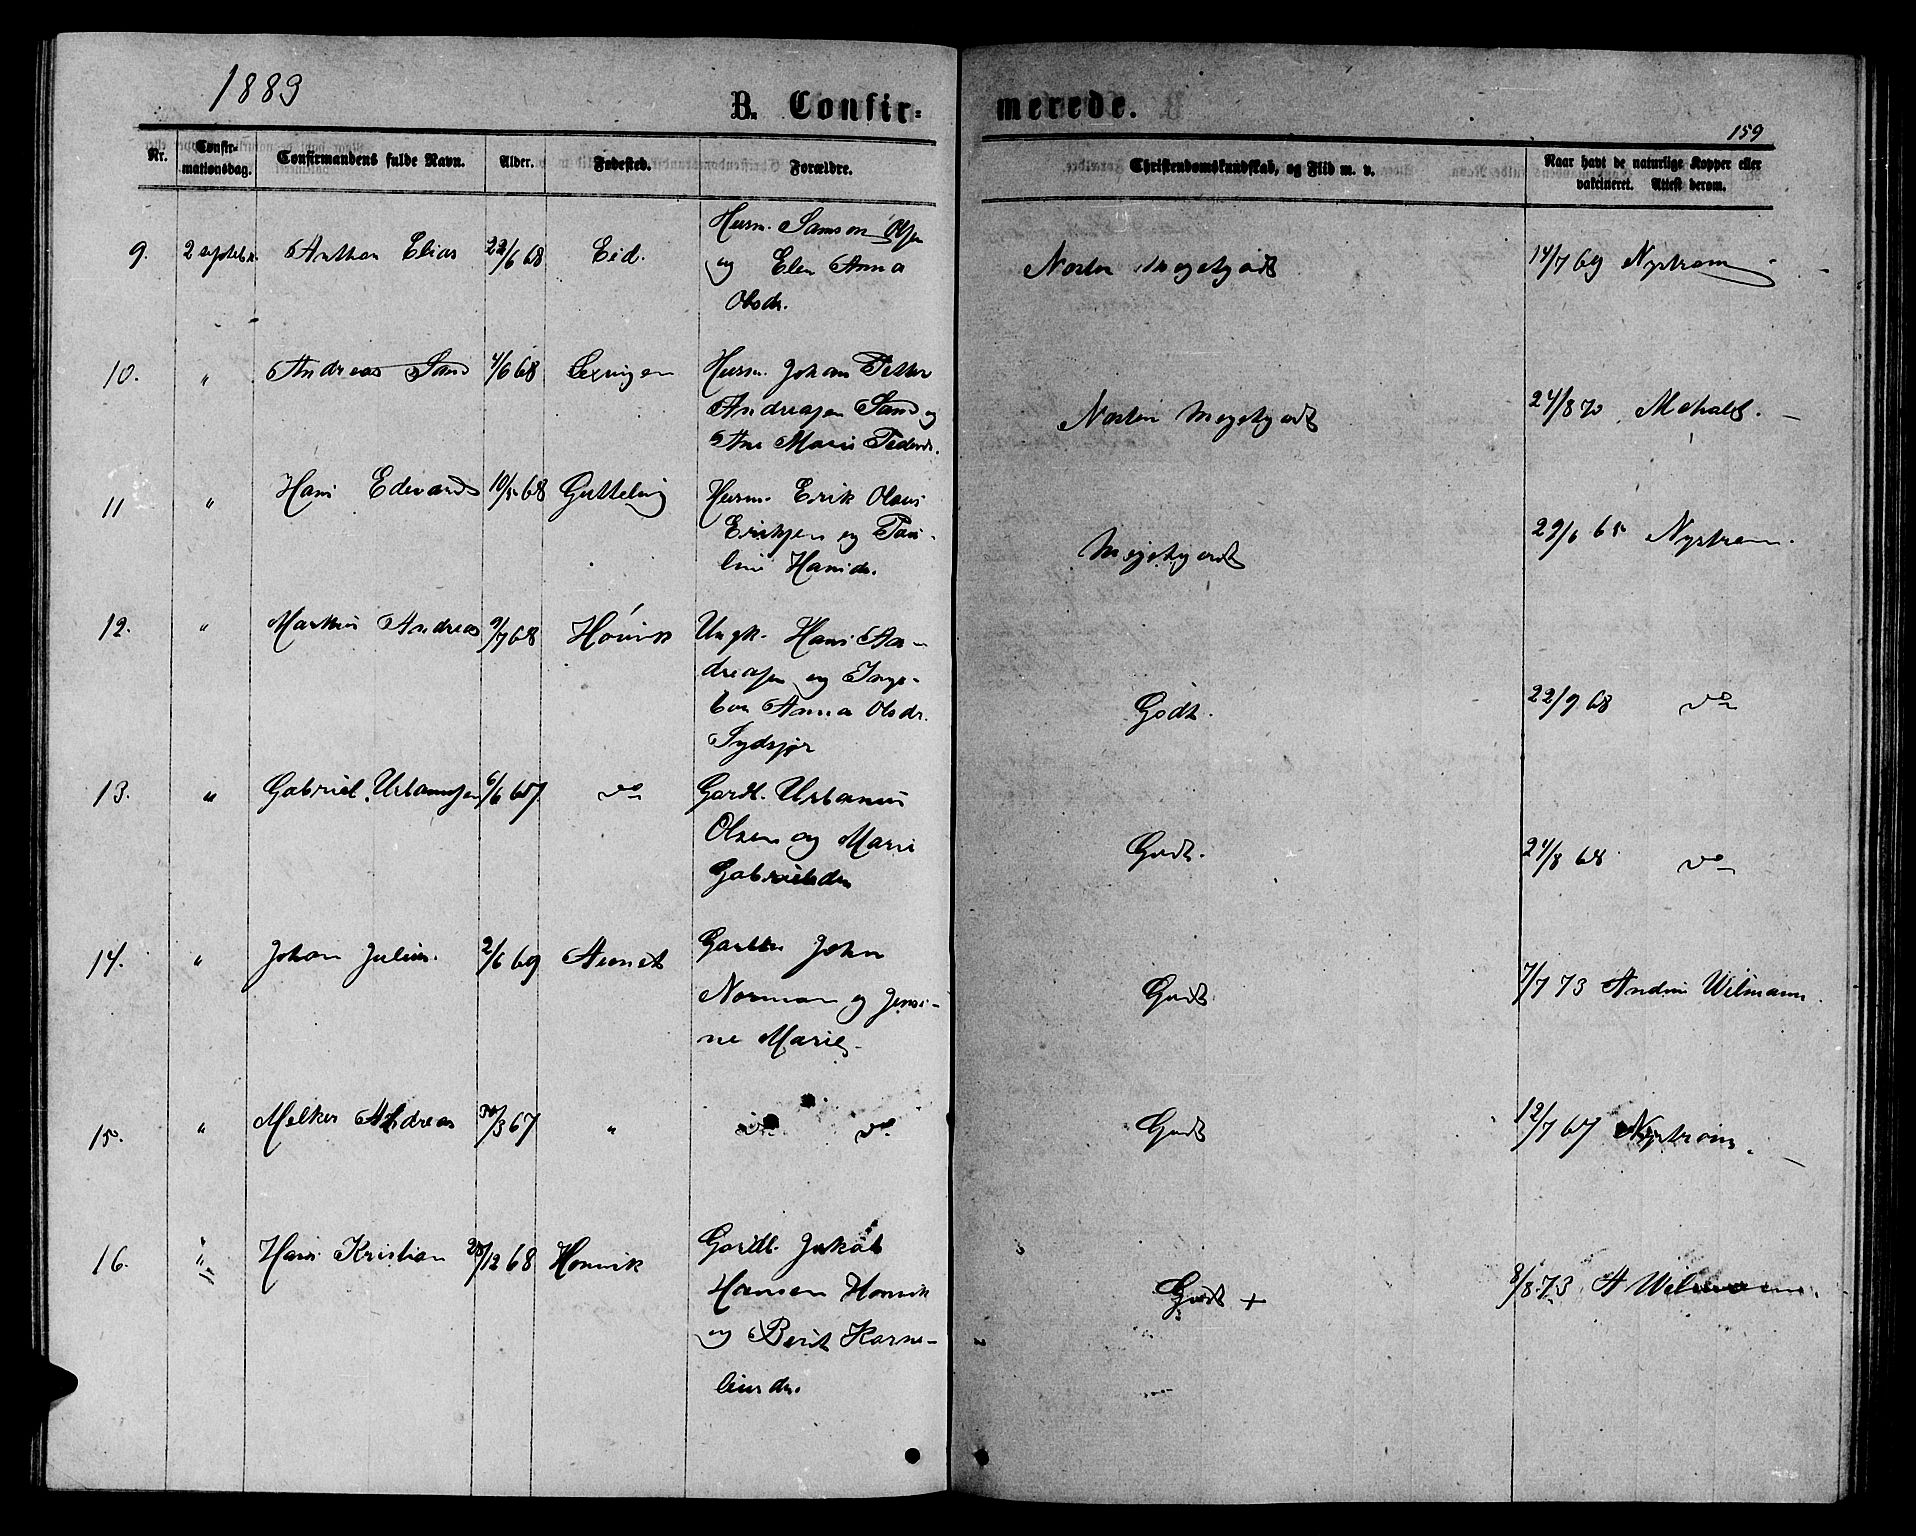 1883
B. Confir-
merede.
159
Nr.
Confir-
mationsdag.
Confirmandens fulde Navn.
Alder.
Fødested.
Forældre.
Christendomskundskab, og Flid m. v.
Naar havt de naturlige Kopper eller
vakcineret. Attest derom.
9. 2 septebr. Anthon Elias 22/6 68 Eid. Husm. Samson Olsen
og Elen Anna
Olsdr.
Næsten Megetgodt 14/7 69 Nystrøm
10. " Andreas Sand 4/6 68 Husm. Johan Petter
Andreasen Sand og
Ane Marie Pedersdr.
Næsten Megetgodt 24/8 70
11 " Hans Edvard 10/5 68 Guttelvig Husm. Erik Olaus
Eriksen og Pau-
line Hansdr.
Megetgodt 29/6 65 Nystrøm.
12. " Markus Andreas 9/7 68 Hòrvik Ungk. Hans An-
dreasen og Inge-
bor Anna Olsdr.
Sydsjør
Godt. 22/9 68 do
13. " Gabriel Urbanusen 6/6 67 do Gardb. Urbanus
Olsen og Marie
Gabrielsdr
Godt. 24/8 68 do
14. " Johan Julius. 2/6 69 Aunet John
Norman og Jensi-
ne Marie
Godt 7/7 73 Wilmann.
15. " Melker Andreas 30/3 67 " do do
Godt 12/7 67 Nystrøm.
16. " Hans Kristian 28/12 68 Homvik Gardb. Jakob
Hansen Homvik
og Berit Karne-
liusdr.
Godt + 8/8 73 A Wilmann.